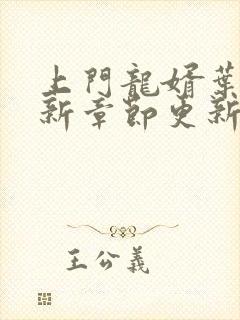 上門龍婿葉
新章節更新
王公義